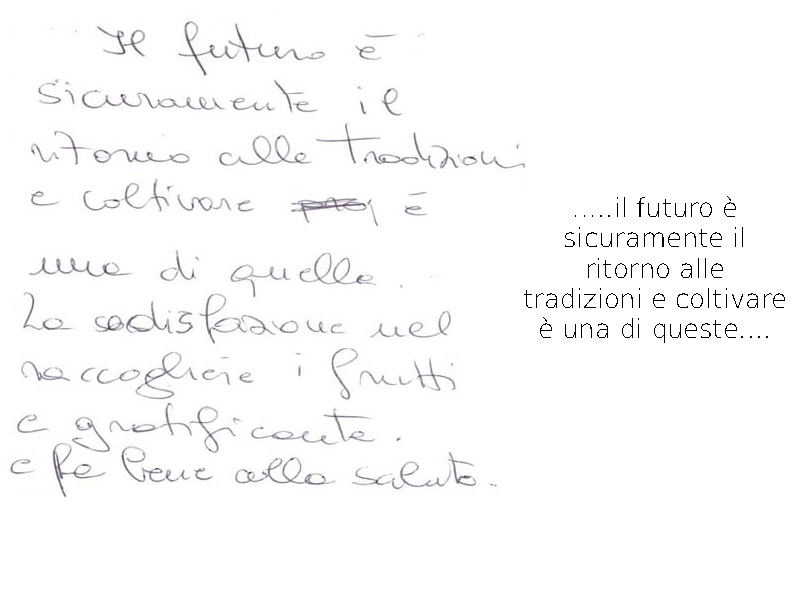 Il futuro è
sicuramente il
ritorno alle tradizioni
e coltivare è
una di quelle.
La sodisfazione nel
raccogliere i frutti
e gratificante.
e fa bene alla saluto.
.....il futuro è
sicuramente il
ritorno alle
tradizioni e coltivare
è una di queste....